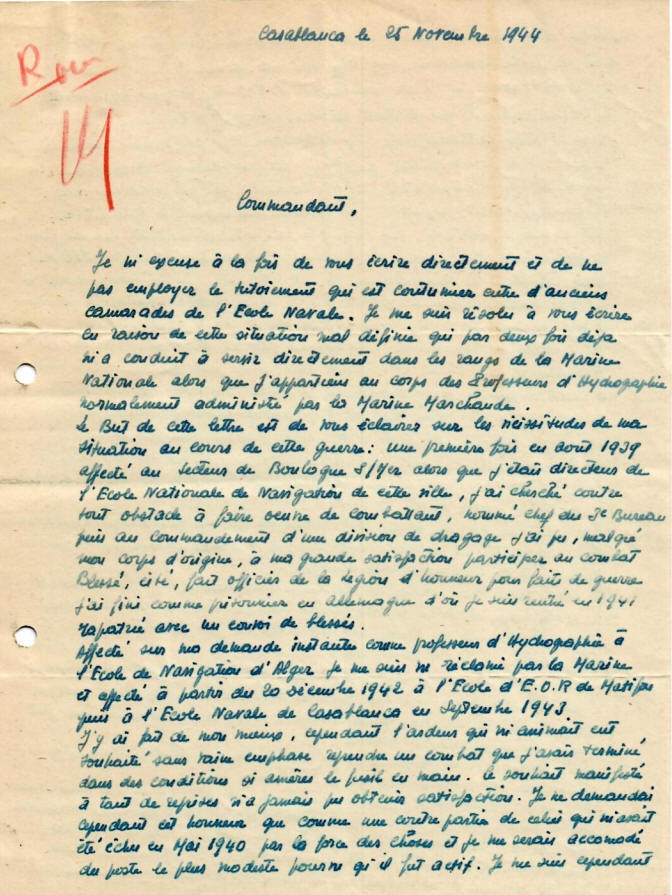 Casablanca le 25 Novembre 1944
Commandant,
Je m'excuse à la fois de vous écrire directement et de ne
pas employer le tutoiement qui est coutumier entre d'anciens
camarades de l'Ecole Navale. Je me suis résolu à vous écrire
en raison de cette situation mal définie qui par deux fois déja
m'a conduit à servir directement dans les rangs de la Marine
Nationale alors que j'appartiens au corps des Professeurs d'Hydrographie
normalement administré par la Marine Marchande.
Le But de cette lettre est de vous éclairer sur les vicissitudes de ma
situation au cours de cette guerre : une première fois en août 1939
affecté au secteur de Boulogne S/Mer alors que j'étais directeur de
l'Ecole Nationale de Navigation de cette ville, j'ai cherché contre
tout obstacle à faire oeuvre de combattant, nommé chef du Bureau
puis au commandement d'une division de dragage j'ai pu, malgré
mon corps d'origine, à ma grande satisfaction participer au combat
Blessé, cité, fait officier de la Legion d'honneur pour faits de guerre
j'ai fini comme prisonnier en Allemagne d'où je suis rentré en 1941
rapatrié avec un convoi de blessés.
Affecté sur ma demande instante comme professeur d'Hydrographie à
l'Ecole de Navigation d'Alger je me suis vu réclamé par la Marine
et affecté à partir du 20 Décembre 1942 à l'Ecole d'E.O.R de Matifou
puis à l'Ecole Navale de Casablanca en Septembre 1943
J'y ai fait de mon mieux, cependant l'ardeur qui m'animait eut
souhaité sans vaine emphase reprendre un combat que j'avais terminé
dans des conditions si amères le fusil en main. Ce souhait manifesté
à tant de reprises n'a jamais pu obtenir satisfaction. Je ne demandai
cependant cet honneur que comme une contre partie de celui qui m'avait
été échu en Mai 1940 par la force des choses et je me serais accomodé
du poste le plus modeste pourvu qu'il fut actif. Je me suis cependant